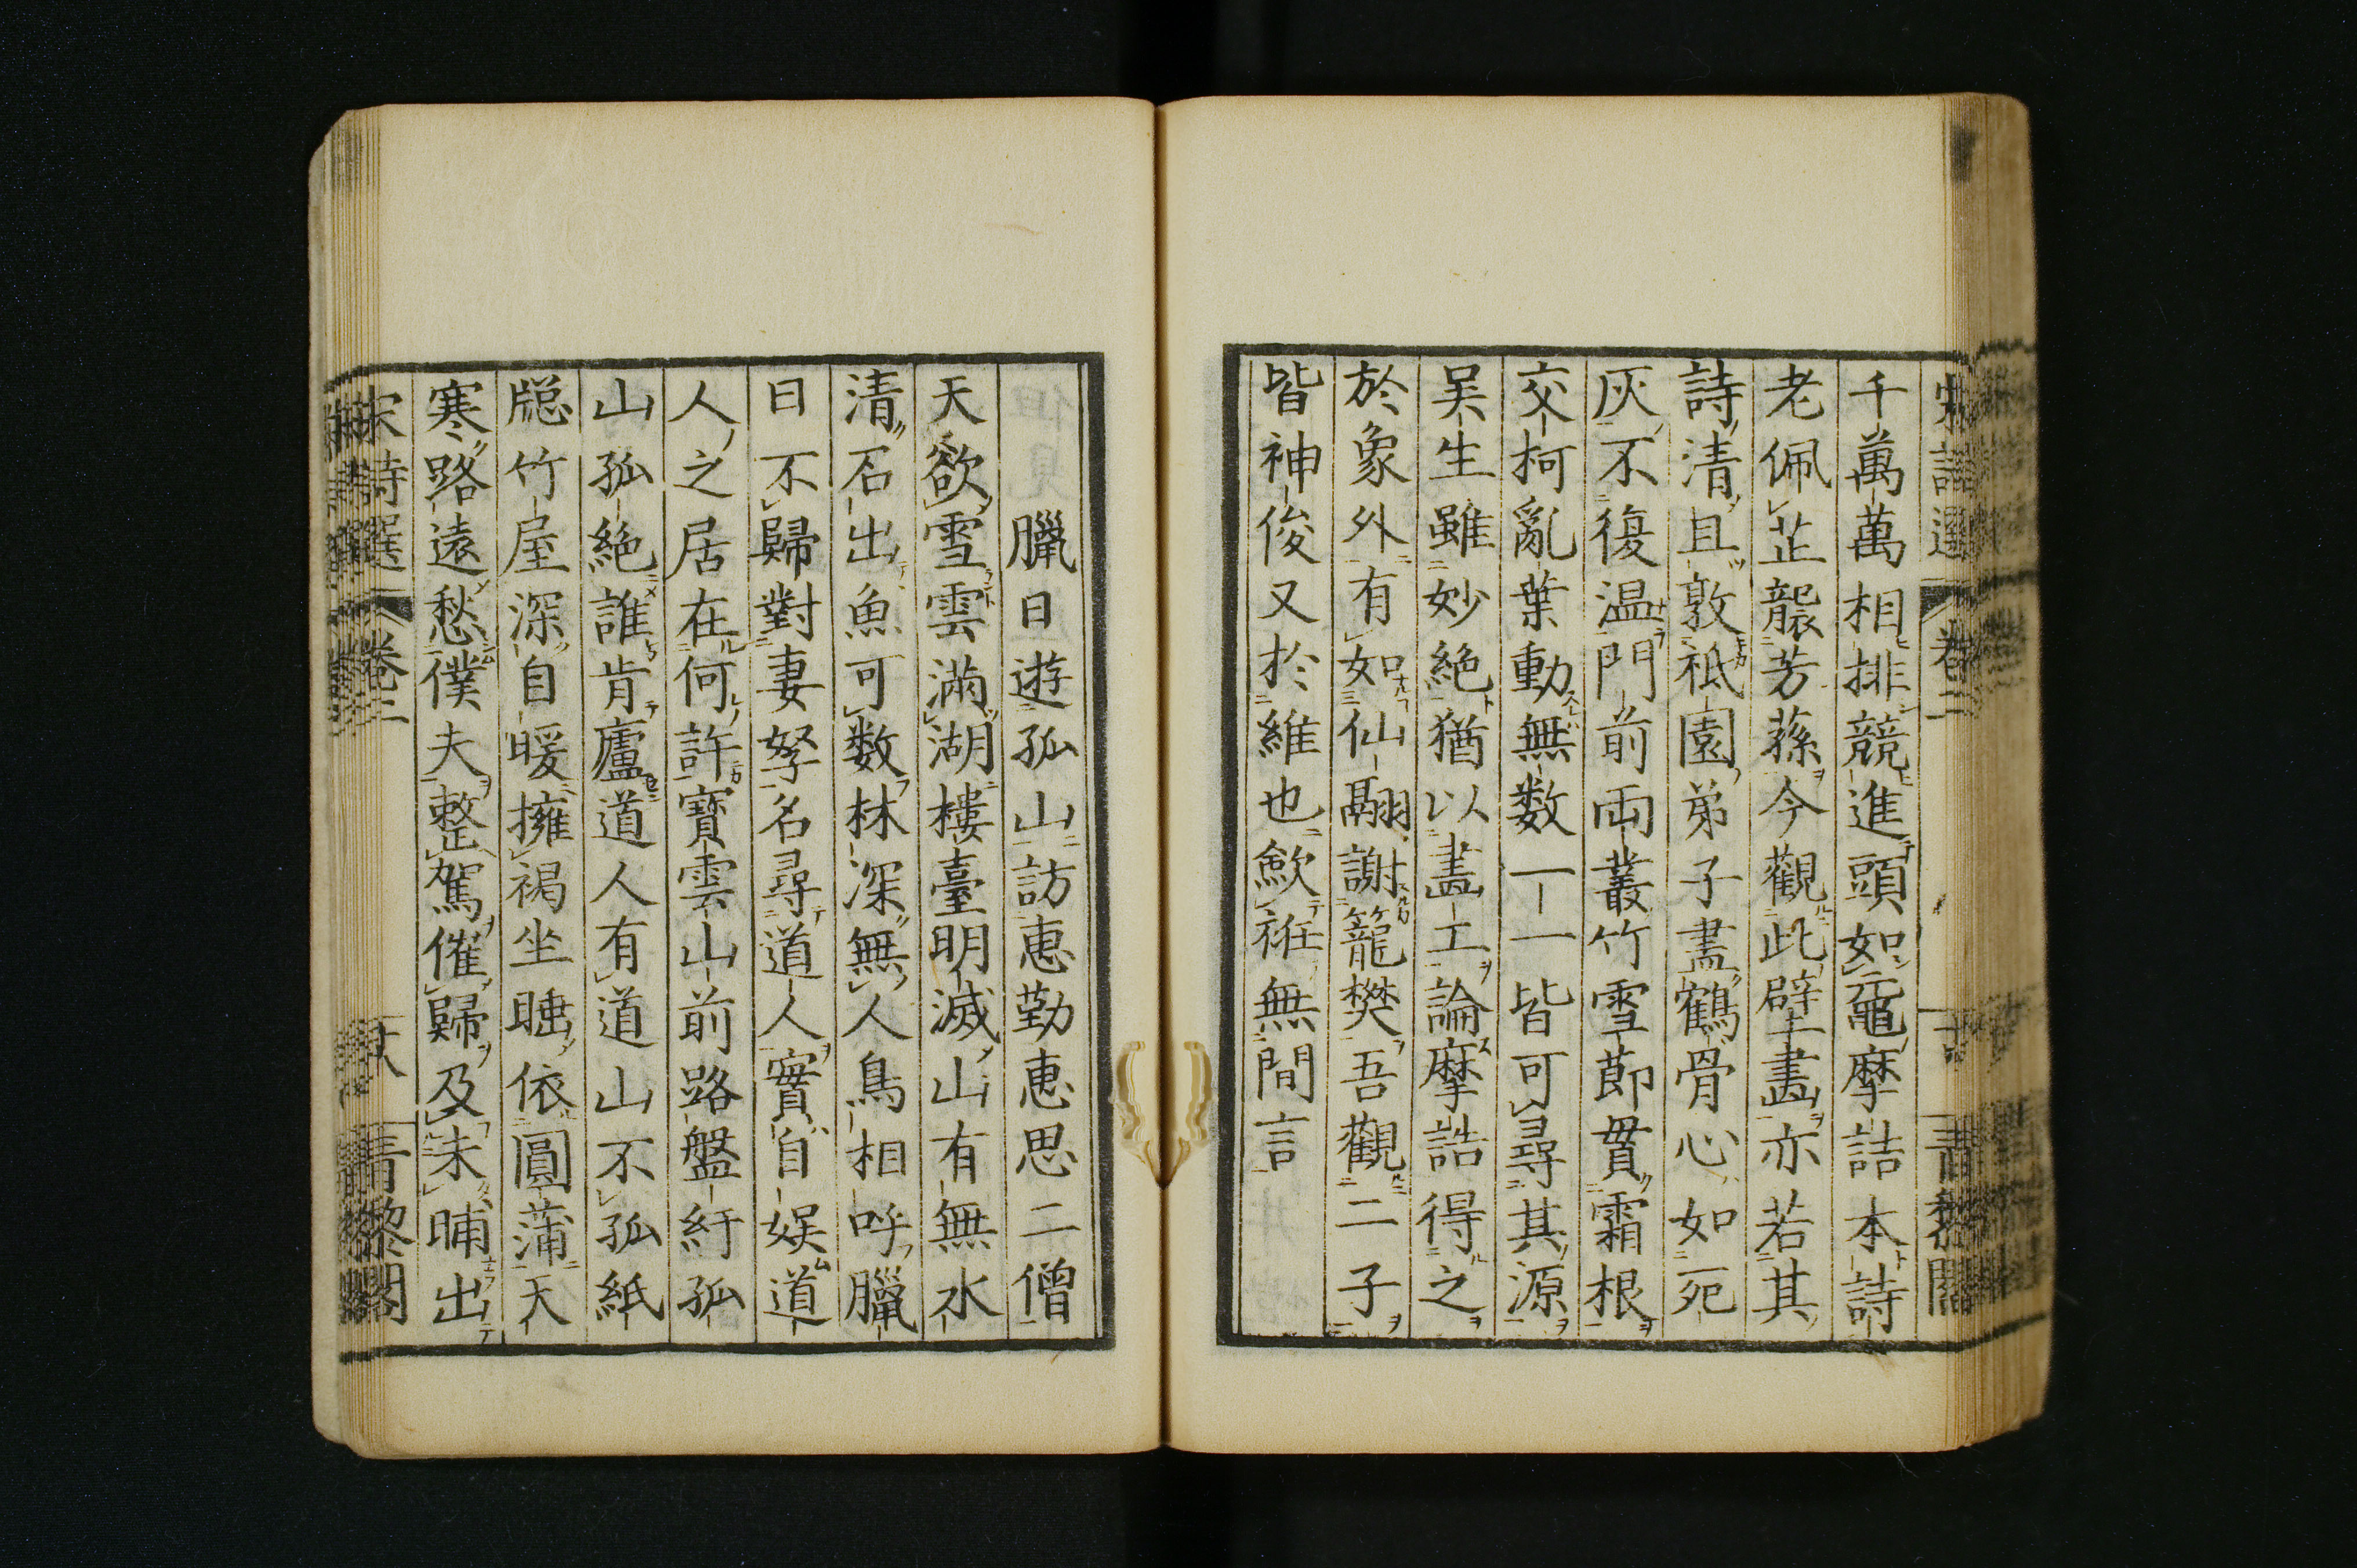 千萬萬相排競進頭如黿摩詰本詩
老佩芷襲芳蓀今觀此壁畫亦若其
詩清且敦祇園弟子盡鶴骨心如死
灰不復温門前両叢竹雪節貫霜根
交柯亂葉動無数一一皆可尋其源
吴生雖妙絶猶以畫工論摩詰得之
於象外有如仙翮謝籠樊吾觀二子
皆神俊又於維也歛袵無間言
臘日遊孤山訪惠勤惠思二僧
天欲雪雲滿湖樓臺明滅山有無水
清石出魚可数林深無人鳥相呼臘
日不歸對妻孥名尋道人實自娱道
人之居在何許寳雲山前路盤紆孤
山孤絶誰肯廬道人有道山不孤紙
牎竹屋深自暖擁褐坐睡依圓蒲天
寒路遠愁僕夫整駕催歸及未晡出
宋詩選 卷二 十六 青藜閣